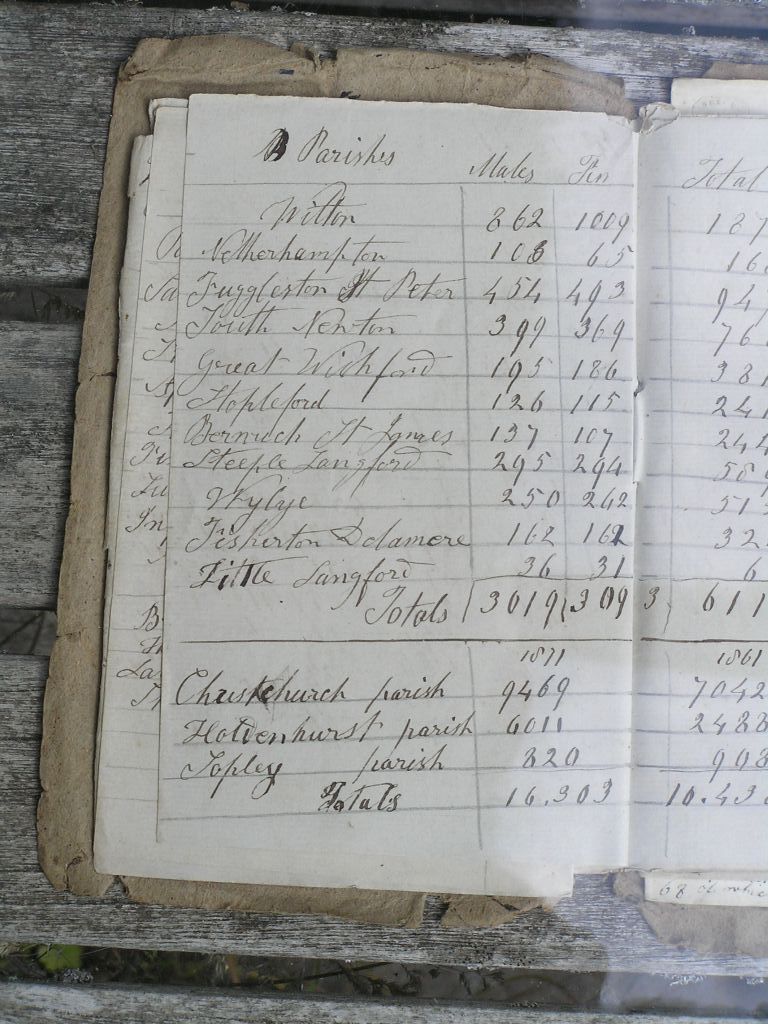 B Parishes Males Fem Total
Wilton 862 1009 187
Netherhampton 103 65 16
Fuggleston St Peter 454 493 94
South Newton 399 369 76
Great Wichford 195 186 381
Stopleford 126 115 241
Berwick St James 137 107 244
Steeple Langford 295 294 58
Wylye 250 262 51
Fisherton Delamere 162 162 32
Little Langford 36 31 6
Totals 3019 3093 611
1871 1861
Christchurch parish 9469 7042
Holdenhurst parish 6011 2488
Sopley parish 820 908
Totals 16.303 10.43
68 of